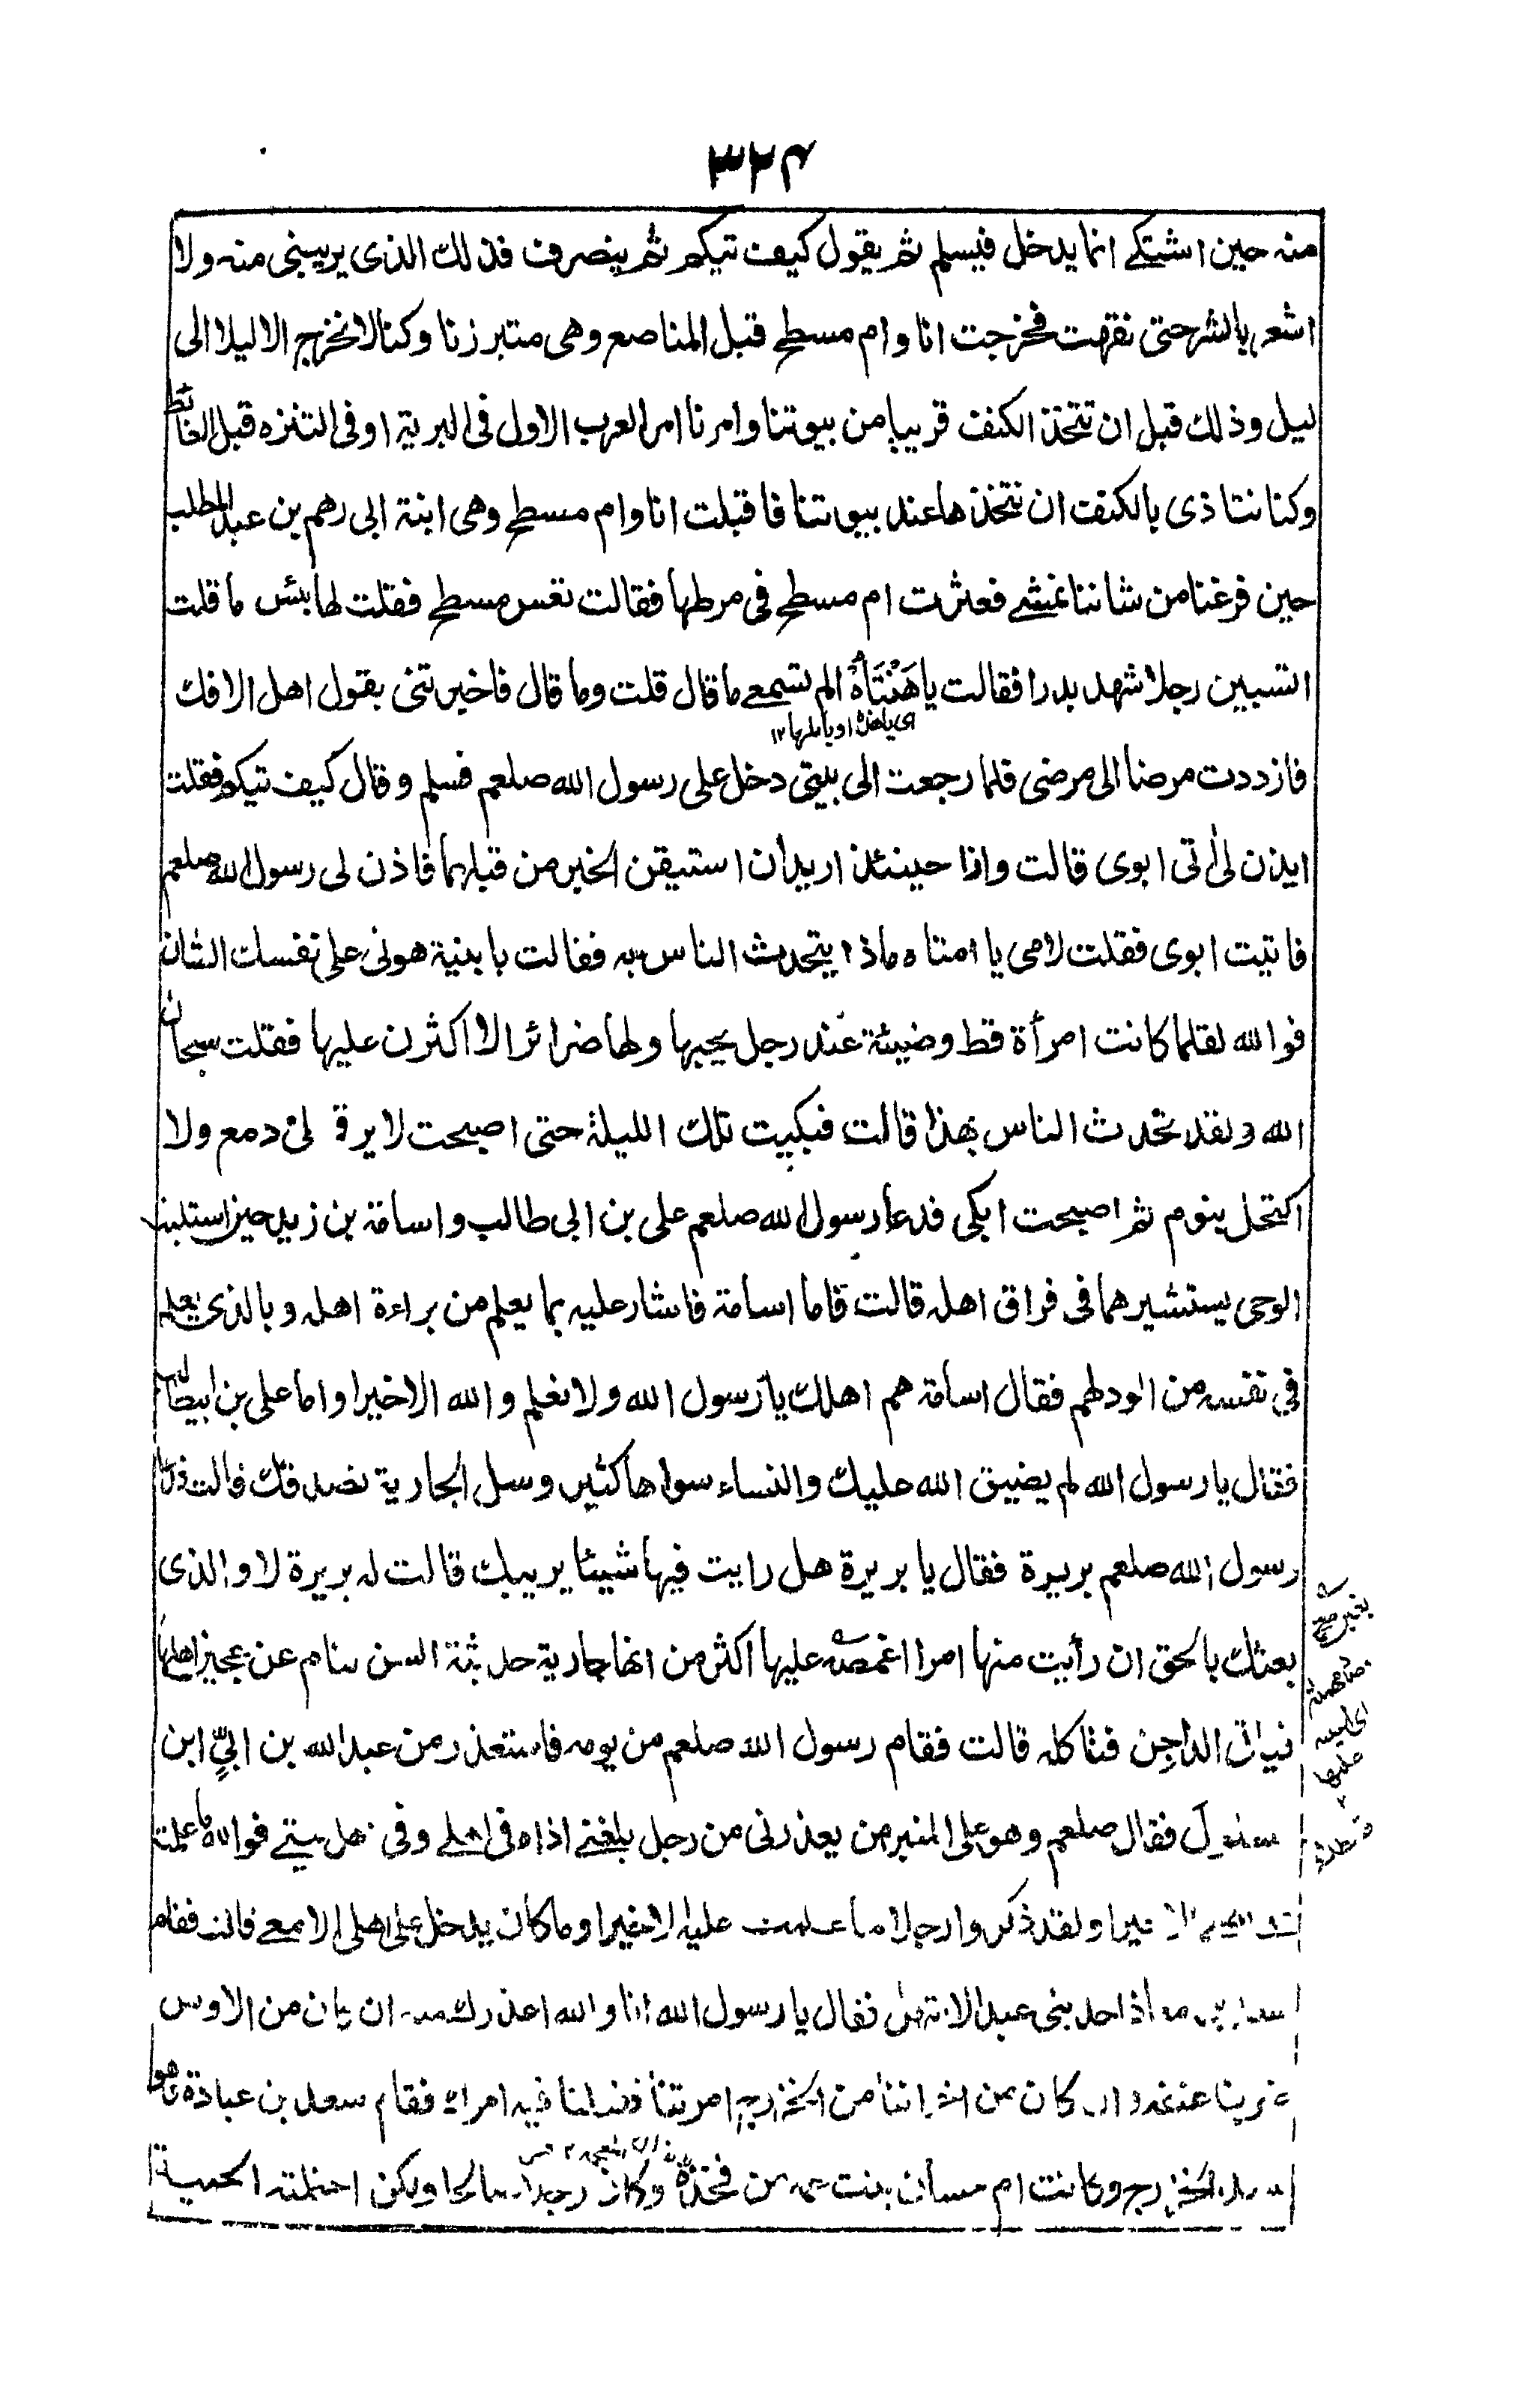 ٣٢٤
منه حين اشتكے انما يدخل فيسلم ثم يقول كيف تيكم ثم ينصرف فذلك الذى يريبنى منه ولا
اشعر بالشر حتى نقهت فخرجت انا وام مسطح قبل المناصع وهى متبرزنا وكنا لا نخرج الا ليلا الى
ليل وذلك قبل ان تتخذ الكنف قريبا من بيوتنا وامرنا امر العرب الاول فى البرية او فى التنزه قبل الغائط
وكنا نتاذى بالكنف ان نتخذها عند بيوتنا فاقبلت انا وام مسطح وهى ابنة ابى رهم بن عبد المطلب
حين فرغنا من شاننا نمشے فعثرت ام مسطح فى مرطها فقالت تعس مسطح فقلت لها بئس ما قلت
اتسبين رجلا شهد بدرا فقالت يا هَنْتَاهُ الم تسمعے ما قال قلت وما قال فاخبرتنى بقول اهل الافك
اى يا هذه او يا بلها ١٢
فازددت مرضا الى مرضى فلما رجعت الى بيتى دخل على رسول الله صلعم فسلم وقال كيف تيكم فقلت
ايذن لى اٰتى ابوى قالت وانا حينئذ اريد ان استيقن الخبر من قبلهما فاذن لى رسول الله صلعم
فاتيت ابوى فقلت لامى يا امتاه ماذا يتحدث الناس به فقالت يا بنية هونى على نفسك الشان
فوالله لقلما كانت امرأة قط وضيئة عند رجل يحبها ولها ضرائر الا اكثرن عليها فقلت سبحان
الله ولقد تحدث الناس بهذا قالت فبكيت تلك الليلة حتى اصبحت لا يرقى لى دمع ولا
اكتحل بنوم ثم اصبحت ابكى فدعا رسول الله صلعم على بن ابى طالب واسامة بن زيد حين استلبث
الوحى يستشيرهما فى فراق اهله قالت فاما اسامة فاشار عليه بما يعلم من براءة اهله وبالذى يعلم
فى نفسه من الود لهم فقال اسامة هم اهلك يا رسول الله ولا نعلم والله الا خيرا واما على بن ابيطالب
فقال يا رسول الله لم يضيق الله عليك والنساء سواها كثير وسل الجارية تصدقك قالت فدعا
رسول الله صلعم بريرة فقال يا بريرة هل رايت فيها شيئا يريبك قالت له بريرة لا والذى
بعثك بالحق ان رأيت منها امرا اغمصه عليها اكثر من انها جارية حديثة السن تنام عن عجين اهلها
فياتى الداجن فتاكله قالت فقام رسول الله صلعم من يومه فاستعذر من عبد الله بن ابىٍّ ابن
سلول فقال صلعم وهو على المنبر من يعذرنى من رجل بلغنے اذاه فى اهلے وفى اهل بيتے فوالله ما علمت
الا خيرا ولقد ذكروا رجلا ما علمت عليه الا خيرا وما كان يدخل على اهلى الا معے قالت فقام
احد بنى عبد الاشهل فقال يا رسول الله انا والله اعذرك منه ان كان من الاوس
ضربنا عنقه وان كان من اخواننا من الخزرج امرتنا ففعلنا فيه امرك فقام سعد بن عبادة وهو
سيد الخزرج وكانت ام حسان بنت عمه من فخذه وكان رجلا صالحا ولكن احتملته الحمية